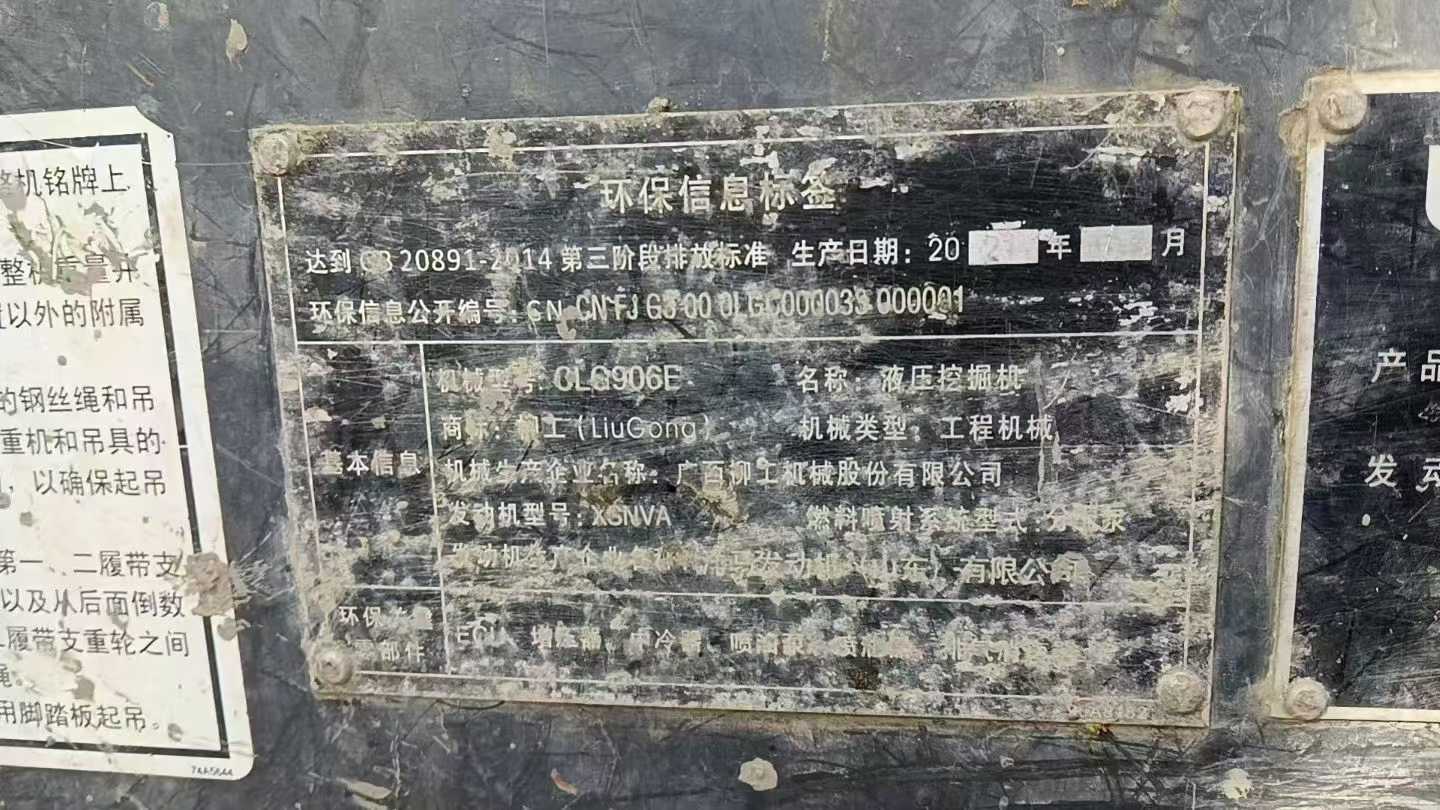 整机铭牌上
整机质量并
以外的附属
的钢丝绳和吊
重机和吊具的
，以确保起吊
第一、二履带支
以及从后面倒数
履带支重轮之间
绳。
用脚踏板起吊。
7AA5644
环保信息标签
达到 GB 20891-2014 第三阶段排放标准 生产日期：20 年 月
环保信息公开编号：CN CN FJ G3 00 0LGC000039 000001
基本信息
机械型号：CLG906E 名称：液压挖掘机
商标：柳工（LiuGong） 机械类型：工程机械
机械生产企业名称：广西柳工机械股份有限公司
发动机型号：XSNVA 燃料喷射系统型式：泵
发动机生产企业名称：发动机（山东）有限公司
环保 部件
ECU、增压器、中冷器、喷油泵、
产品
发动